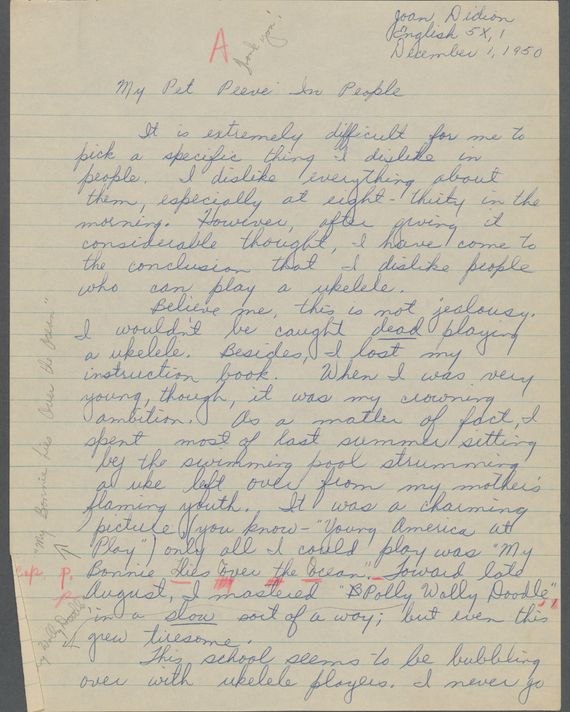 Joan Didion
English 5X, 1
December 1, 1950
A
Thank you!
My Pet Peeve In People
It is extremely difficult for me to
pick a specific thing I dislike in
people. I dislike everything about
them, especially at eight-thirty in the
morning. However, after giving it
considerable thought, I have come to
the conclusion that I dislike people
who can play a ukelele.
Believe me, this is not jealousy.
I wouldn't be caught dead playing
a ukelele. Besides, I lost my
instruction book. When I was very
young, though, it was my crowning
ambition. As a matter of fact, I
spent most of last summer sitting
by the swimming pool strumming
a uke left over from my mother's
flaming youth. It was a charming
picture (you know-"Young America at
Play") only all I could play was "My
Bonnie Lies Over the Ocean". Toward late
August, I mastered "Polly Wally Doodle",
in a slow sort of a way; but even this
grew tiresome.
This school seems to be bubbling
over with ukelele players. I never go
"My Bonnie Lies Over the Ocean"
cap
p.
p.
Wolly Doodle